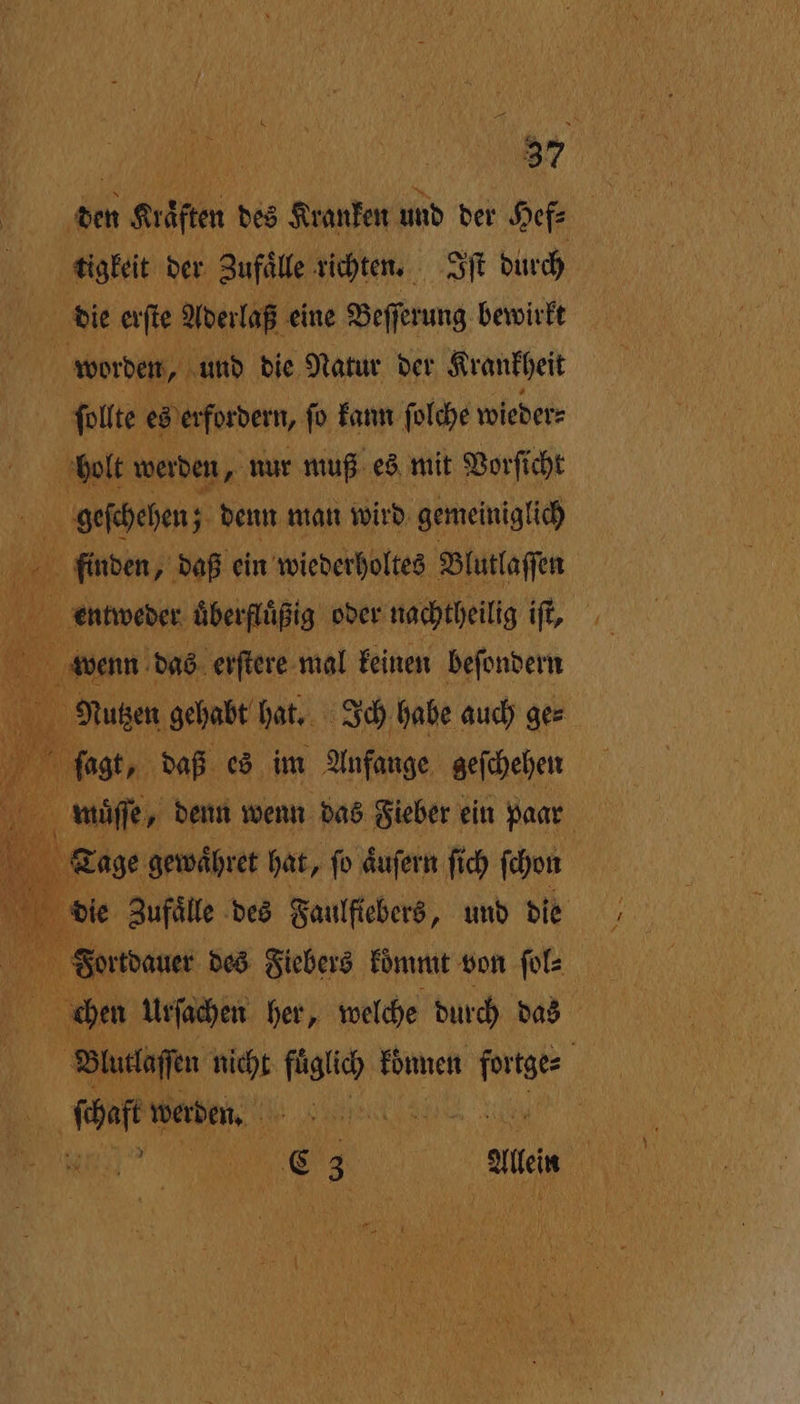 37
den Kraͤften des Kranken und der Hef⸗
tigkeit der Zufaͤlle richten. Iſt durch
die erſte Aderlaß eine Beſſerung bewirkt
worden, und die Natur der Krankheit
ſollte es erfordern, ſo kann ſolche wieder⸗
holt werden, nur muß es mit Vorſicht
geſchehen; denn man wird gemeiniglich
finden, daß ein wiederholtes Blutlaſſen
entweder uͤberfluͤßig oder nachtheilig iſt,
wenn das erſtere mal keinen beſondern
Nutzen gehabt hat. Ich habe auch ge⸗
ſagt, daß es im Anfange geſchehen
muͤſſe, denn wenn das Fieber ein paar
Tage gewaͤhret hat, ſo aͤuſern ſich ſchon
die Zufaͤlle des Faulfiebers, und die
Fortdauer des Fiebers koͤmmt von ſol⸗
chen Urſachen her, welche durch das
Blutlaſſen nicht fuͤglich koͤnnen fortge⸗
ſchaft werden.
C 3 Allein